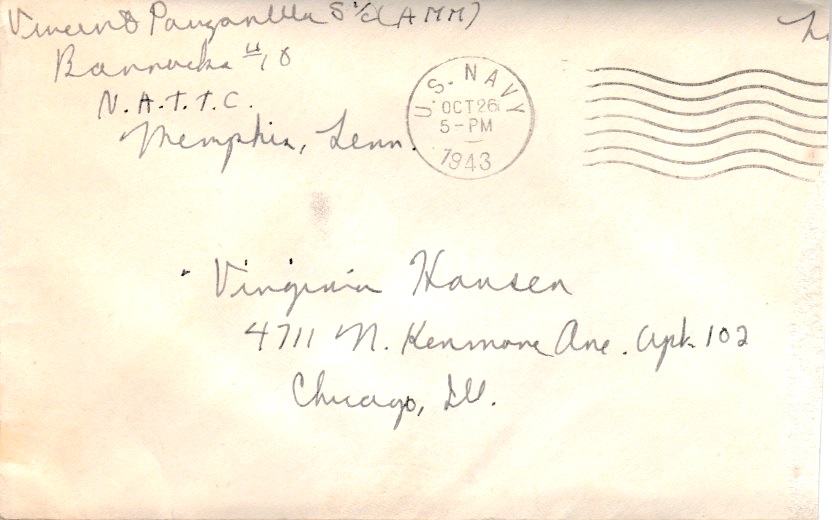 Vincent Panzanella S²/c (AMM)
Barracks 10
N.A.T.T.C.
Memphis, Tenn.
U.S. NAVY
OCT 26
5-PM
1943
Virginia Hansen
4711 N. Kenmore Ave. Apt. 102
Chicago, Ill.